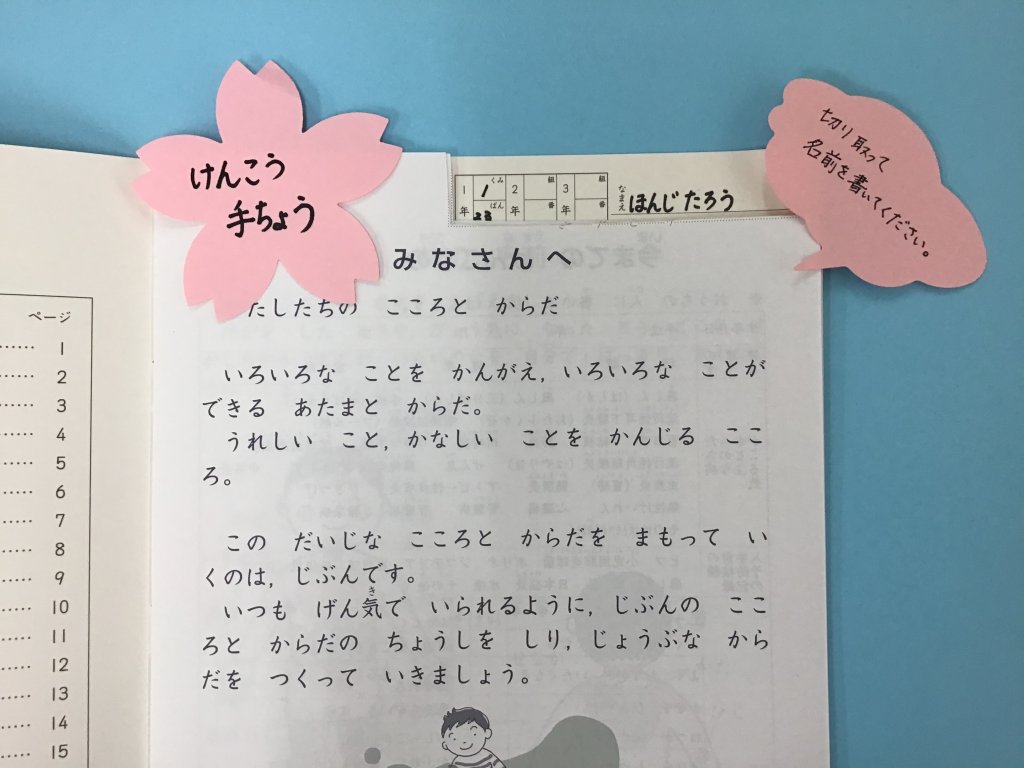 けんこう
手ちょう
切り取って
名前を書いてください。
1年 1くみ 23ばん 2年 組 番 3年 組 番 なまえ ほんじ たろう
みなさんへ
たしたちの こころと からだ
いろいろな ことを かんがえ，いろいろな ことが
できる あたまと からだ。
うれしい こと，かなしい ことを かんじる ここ
ろ。
この だいじな こころと からだを まもって い
くのは，じぶんです。
いつも げん気で いられるように，じぶんの ここ
ろと からだの ちょうしを しり，じょうぶな から
だを つくって いきましょう。
ページ
1
2
3
4
5
6
7
8
9
10
11
12
13
14
15